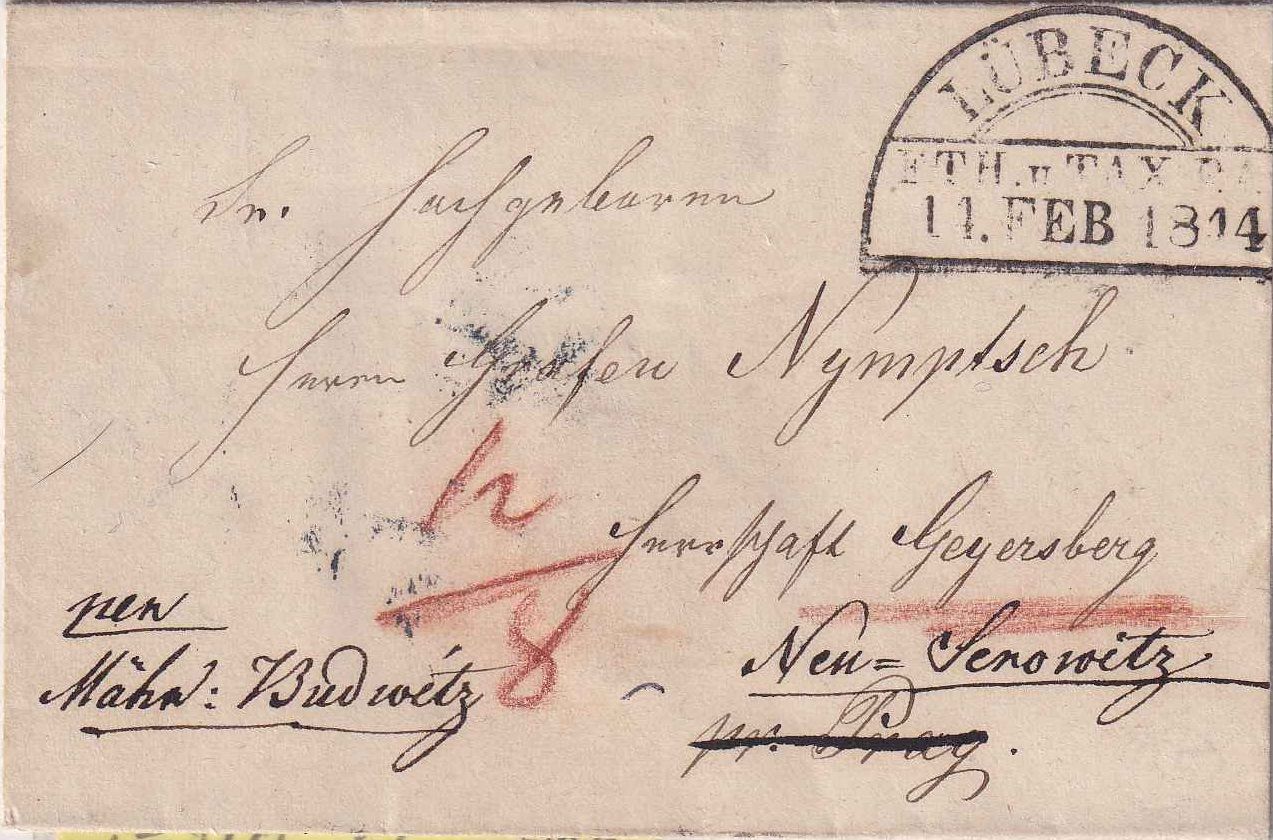 LÜBECK
ETH. u TAX
11. FEB 1844
Sr. Hochgeboren
Herrn Grafen Nymptsch
Herrschaft Geyersberg
per
Neu= Serowitz
Mähr: Budwitz
pr. Prag.
8